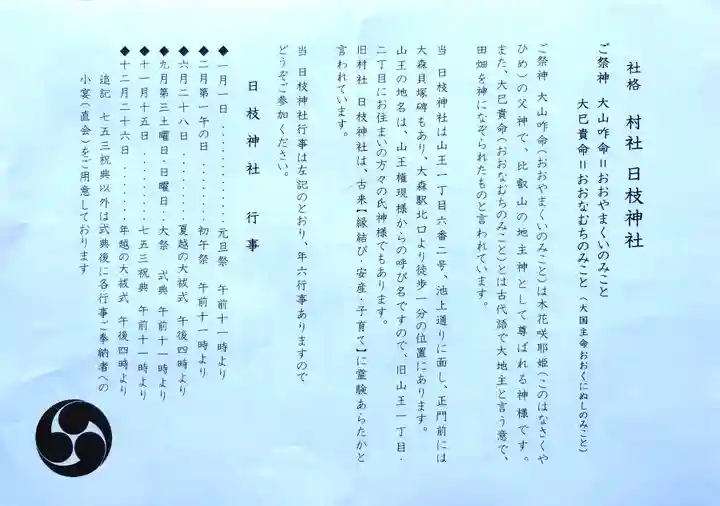 社格　村社　日枝神社
ご祭神　大山咋命＝おおやまくいのみこと
大巳貴命＝おおなむちのみこと（大国主命おおくにぬしのみこと）
ご祭神　大山咋命（おおやまくいのみこと）は木花咲耶姫（このはなさくや
ひめ）の父神で、比叡山の地主神として尊ばれる神様です。
また、大巳貴命（おおなむちのみこと）とは古代語で大地主と言う意で、
田畑を神になぞられたものと言われています。
当　日枝神社は山王一丁目六番二号、池上通りに面し、正門前には
大森貝塚碑もあり、大森駅北口より徒歩一分の位置にあります。
山王の地名は、山王権現様からの呼び名ですので、旧山王一丁目・
二丁目にお住まいの方々の氏神様でもあります。
旧村社　日枝神社は、古来【縁結び・安産・子育て】に霊験あらたかと
言われています。
当　日枝神社行事は左記のとおり、年六行事ありますので
どうぞご参加ください。
日枝神社　行事
◆一月一日………………元旦祭　午前十一時より
◆二月第一午の日………初午祭　午前十一時より
◆六月二十八日…………夏越の大祓式　午後四時より
◆九月第三土曜日・日曜日…大祭　式典　午前十一時より
◆十一月十五日…………七五三祝典　午前十一時より
◆十二月二十六日………年越の大祓式　午後四時より
追記　七五三祝典以外は式典後に各行事ご奉納者への
小宴（直会）をご用意しております